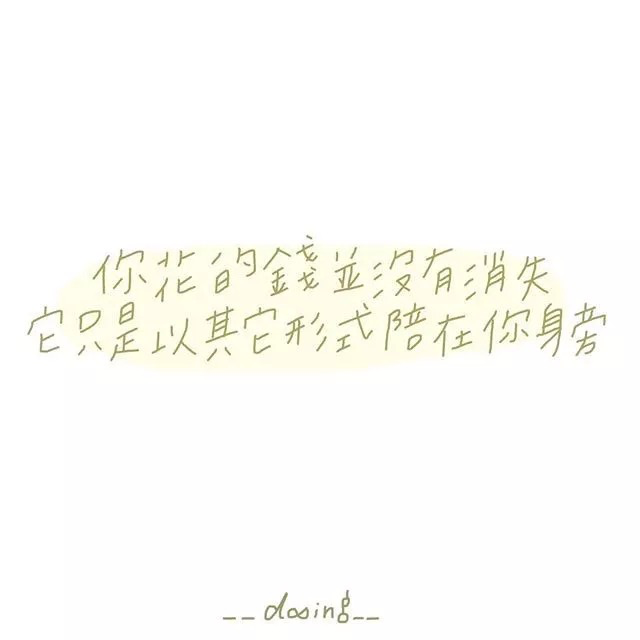 你花的錢並沒有消失
它只是以其它形式陪在你身旁
__dosing__